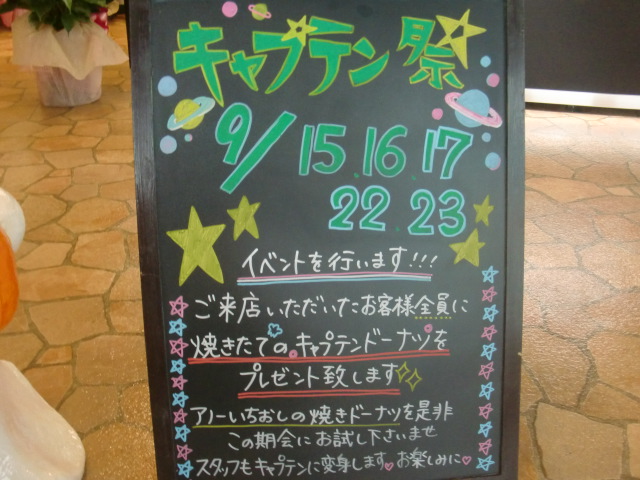 キャプテン祭
9/15.16.17
22.23
イベントを行います!!!
ご来店いただいたお客様全員に
焼きたてのキャプテンドーナツを
プレゼント致します
アノーいちおしの焼きドーナツを是非
この期会にお試し下さいませ
スタッフもキャプテンに変身します♡お楽しみに♡